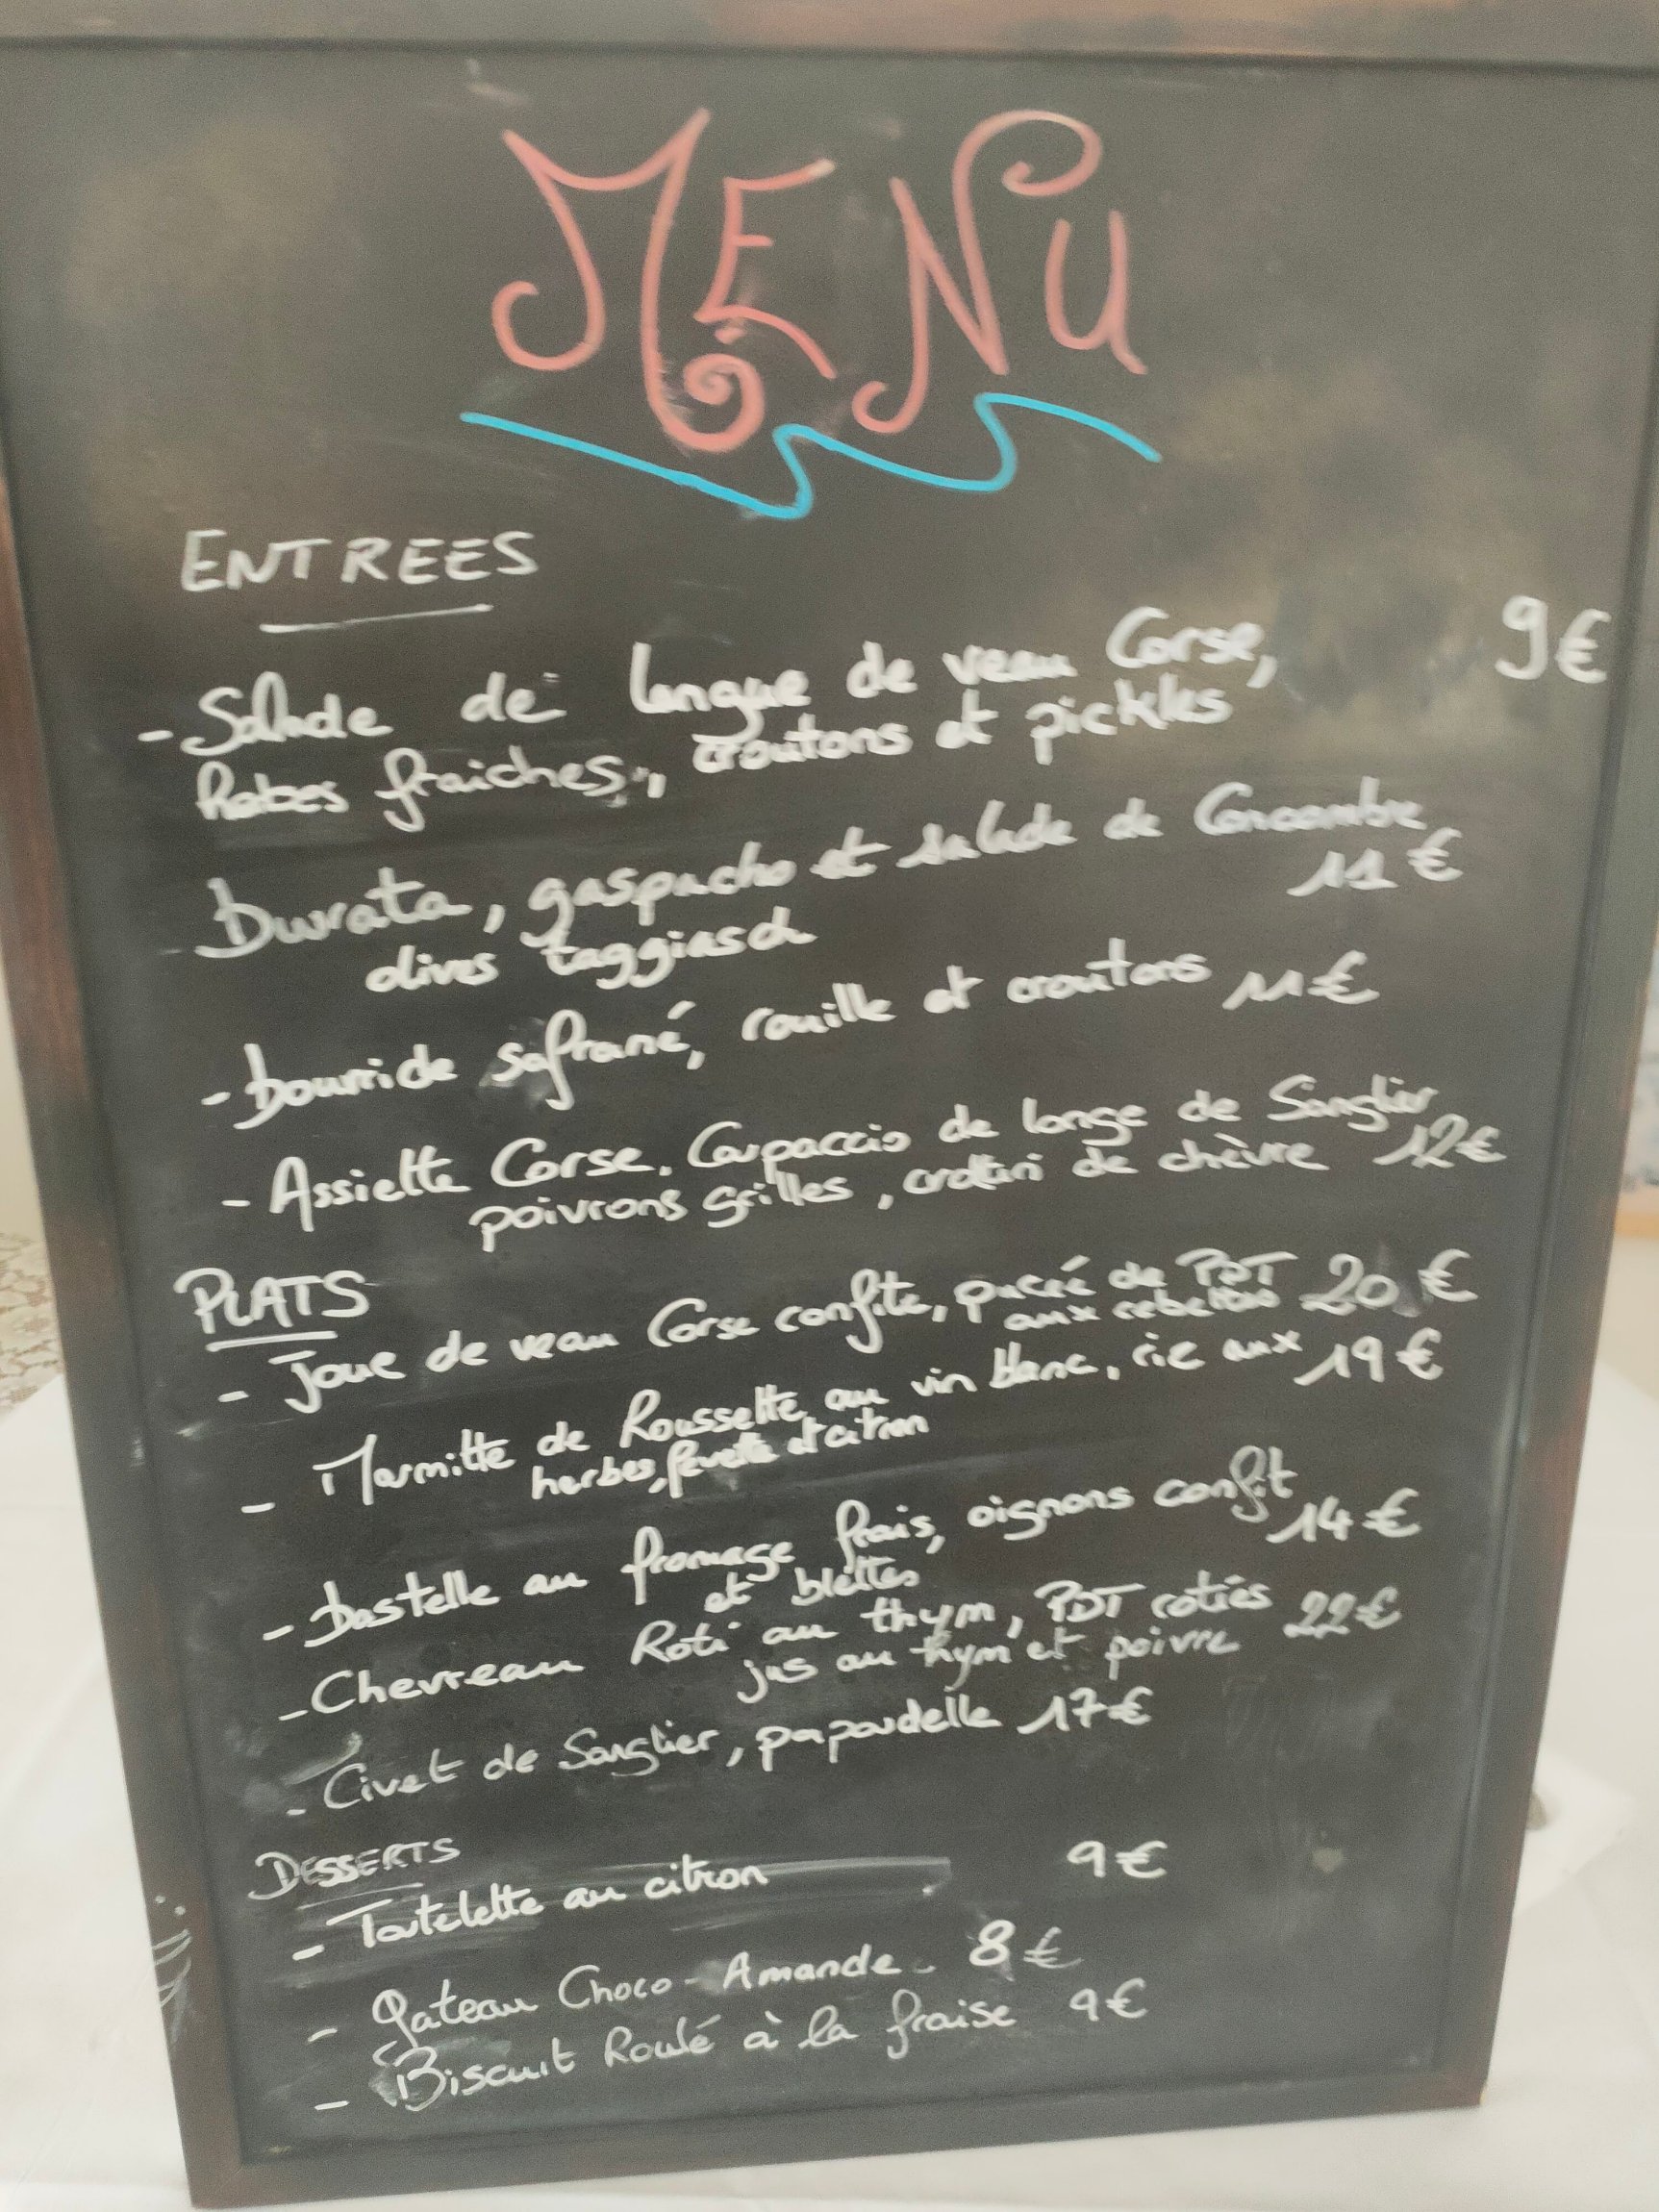 MENU
ENTREES
- Salade de langue de veau Corse, 9€
fraiches, croutons et pickles
Burrata, gaspacho et salade de Concombre
11€
olives taggiasch
- bourride safrané, rouille et croutons 11€
- Assiette Corse. Carpaccio de longe de Sanglier
poivrons grilles, de chèvre 12€
PLATS
- Joue de veau Corse confite, purée de PDT 20€
aux
- Marmitte de Roussette au vin blanc, riz aux 19€
herbes, fevette et citron
- bastelle au fromage frais, oignons confit
14€
et blettes
- Chevreau Roti au thym, PDT roties 22€
jus au thym et poivre
- Civet de Sanglier, papardelle 17€
DESSERTS
- Tartelette au citron 9€
- Gateau Choco-Amande. 8€
- Biscuit Roulé à la fraise 9€